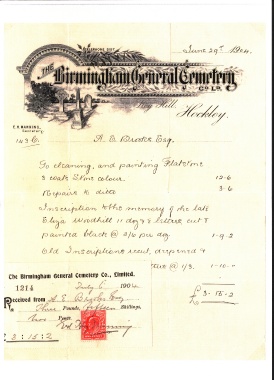 TELEPHONE 2107
June 29th 1904
THE Birmingham General Cemetery Co. Ld.
Key Hill,
Hockley.
E. H. MANNING,
Secretary.
1436
A. E. Brookes Esq.
To cleaning, and painting Flatstone
3 coats Stone colour. 12-6
Repairs to ditto 3-6
Inscription to the memory of the late
Eliza Woodhill 11 doz & 8 letters cut &
painted black @ 2/6 per doz 1-9-2
Old Inscriptions recut, deepened &
@ 1/3. 1-10-"
£ 3-15-2
The Birmingham General Cemetery Co., Limited.
1214 July 6 1904
Received from A. E. Brookes Esq
Three Pounds, Fifteen Shillings,
Two Pence.
£ 3:15:2